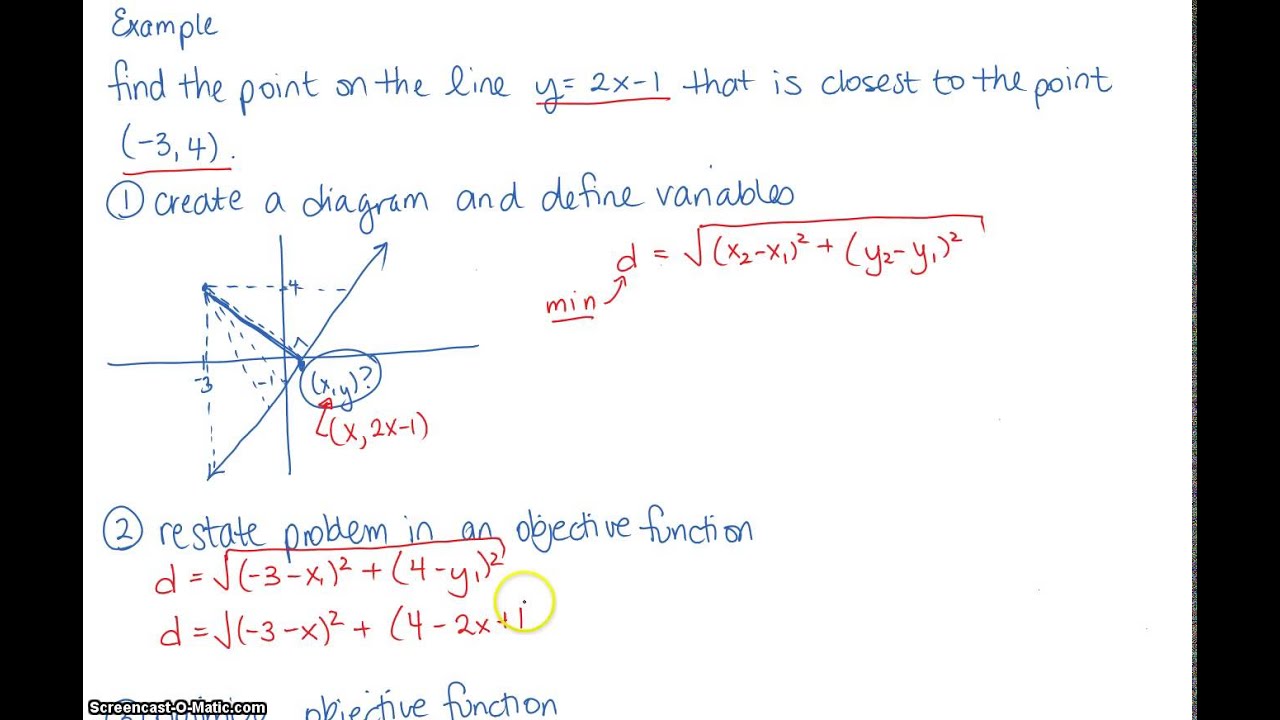 Example
find the point on the line y=2x-1 that is closest to the point
(-3,4).
① create a diagram and define variables
d = √(x₂-x₁)² + (y₂-y₁)²
min
4
-3
-1
(x,y)?
(x, 2x-1)
② restate problem in an objective function
d = √(-3-x₁)² + (4-y₁)²
d = √(-3-x)² + (4-2x+1
objective function
Screencast-O-Matic.com